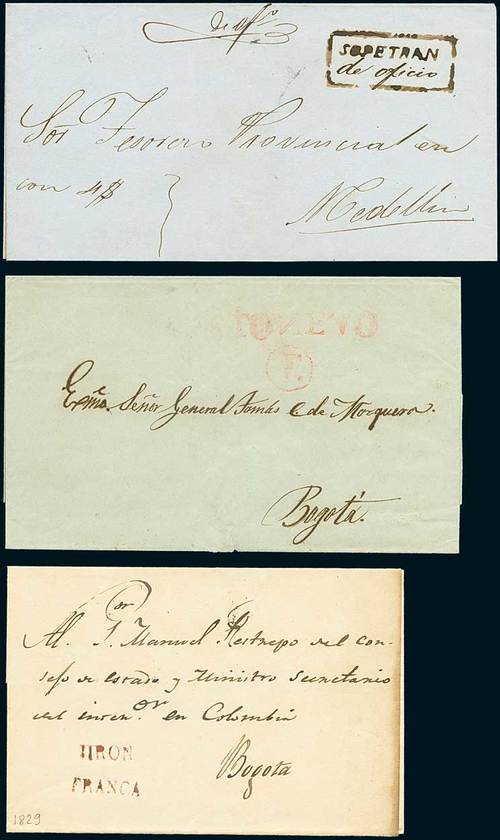 de ofo
SOPETRAN
de oficio
Sor Tesorero Provincial en
con 4$
Medellin
F.
Exmo. Señor General Tomás C de Mosquera.
Bogotá.
Sor
Al. J. Manuel Restrepo del Con-
sejo de estado y Ministro Secretario
del inter.or en Colombia
Bogota
JIRON
FRANCA
1829